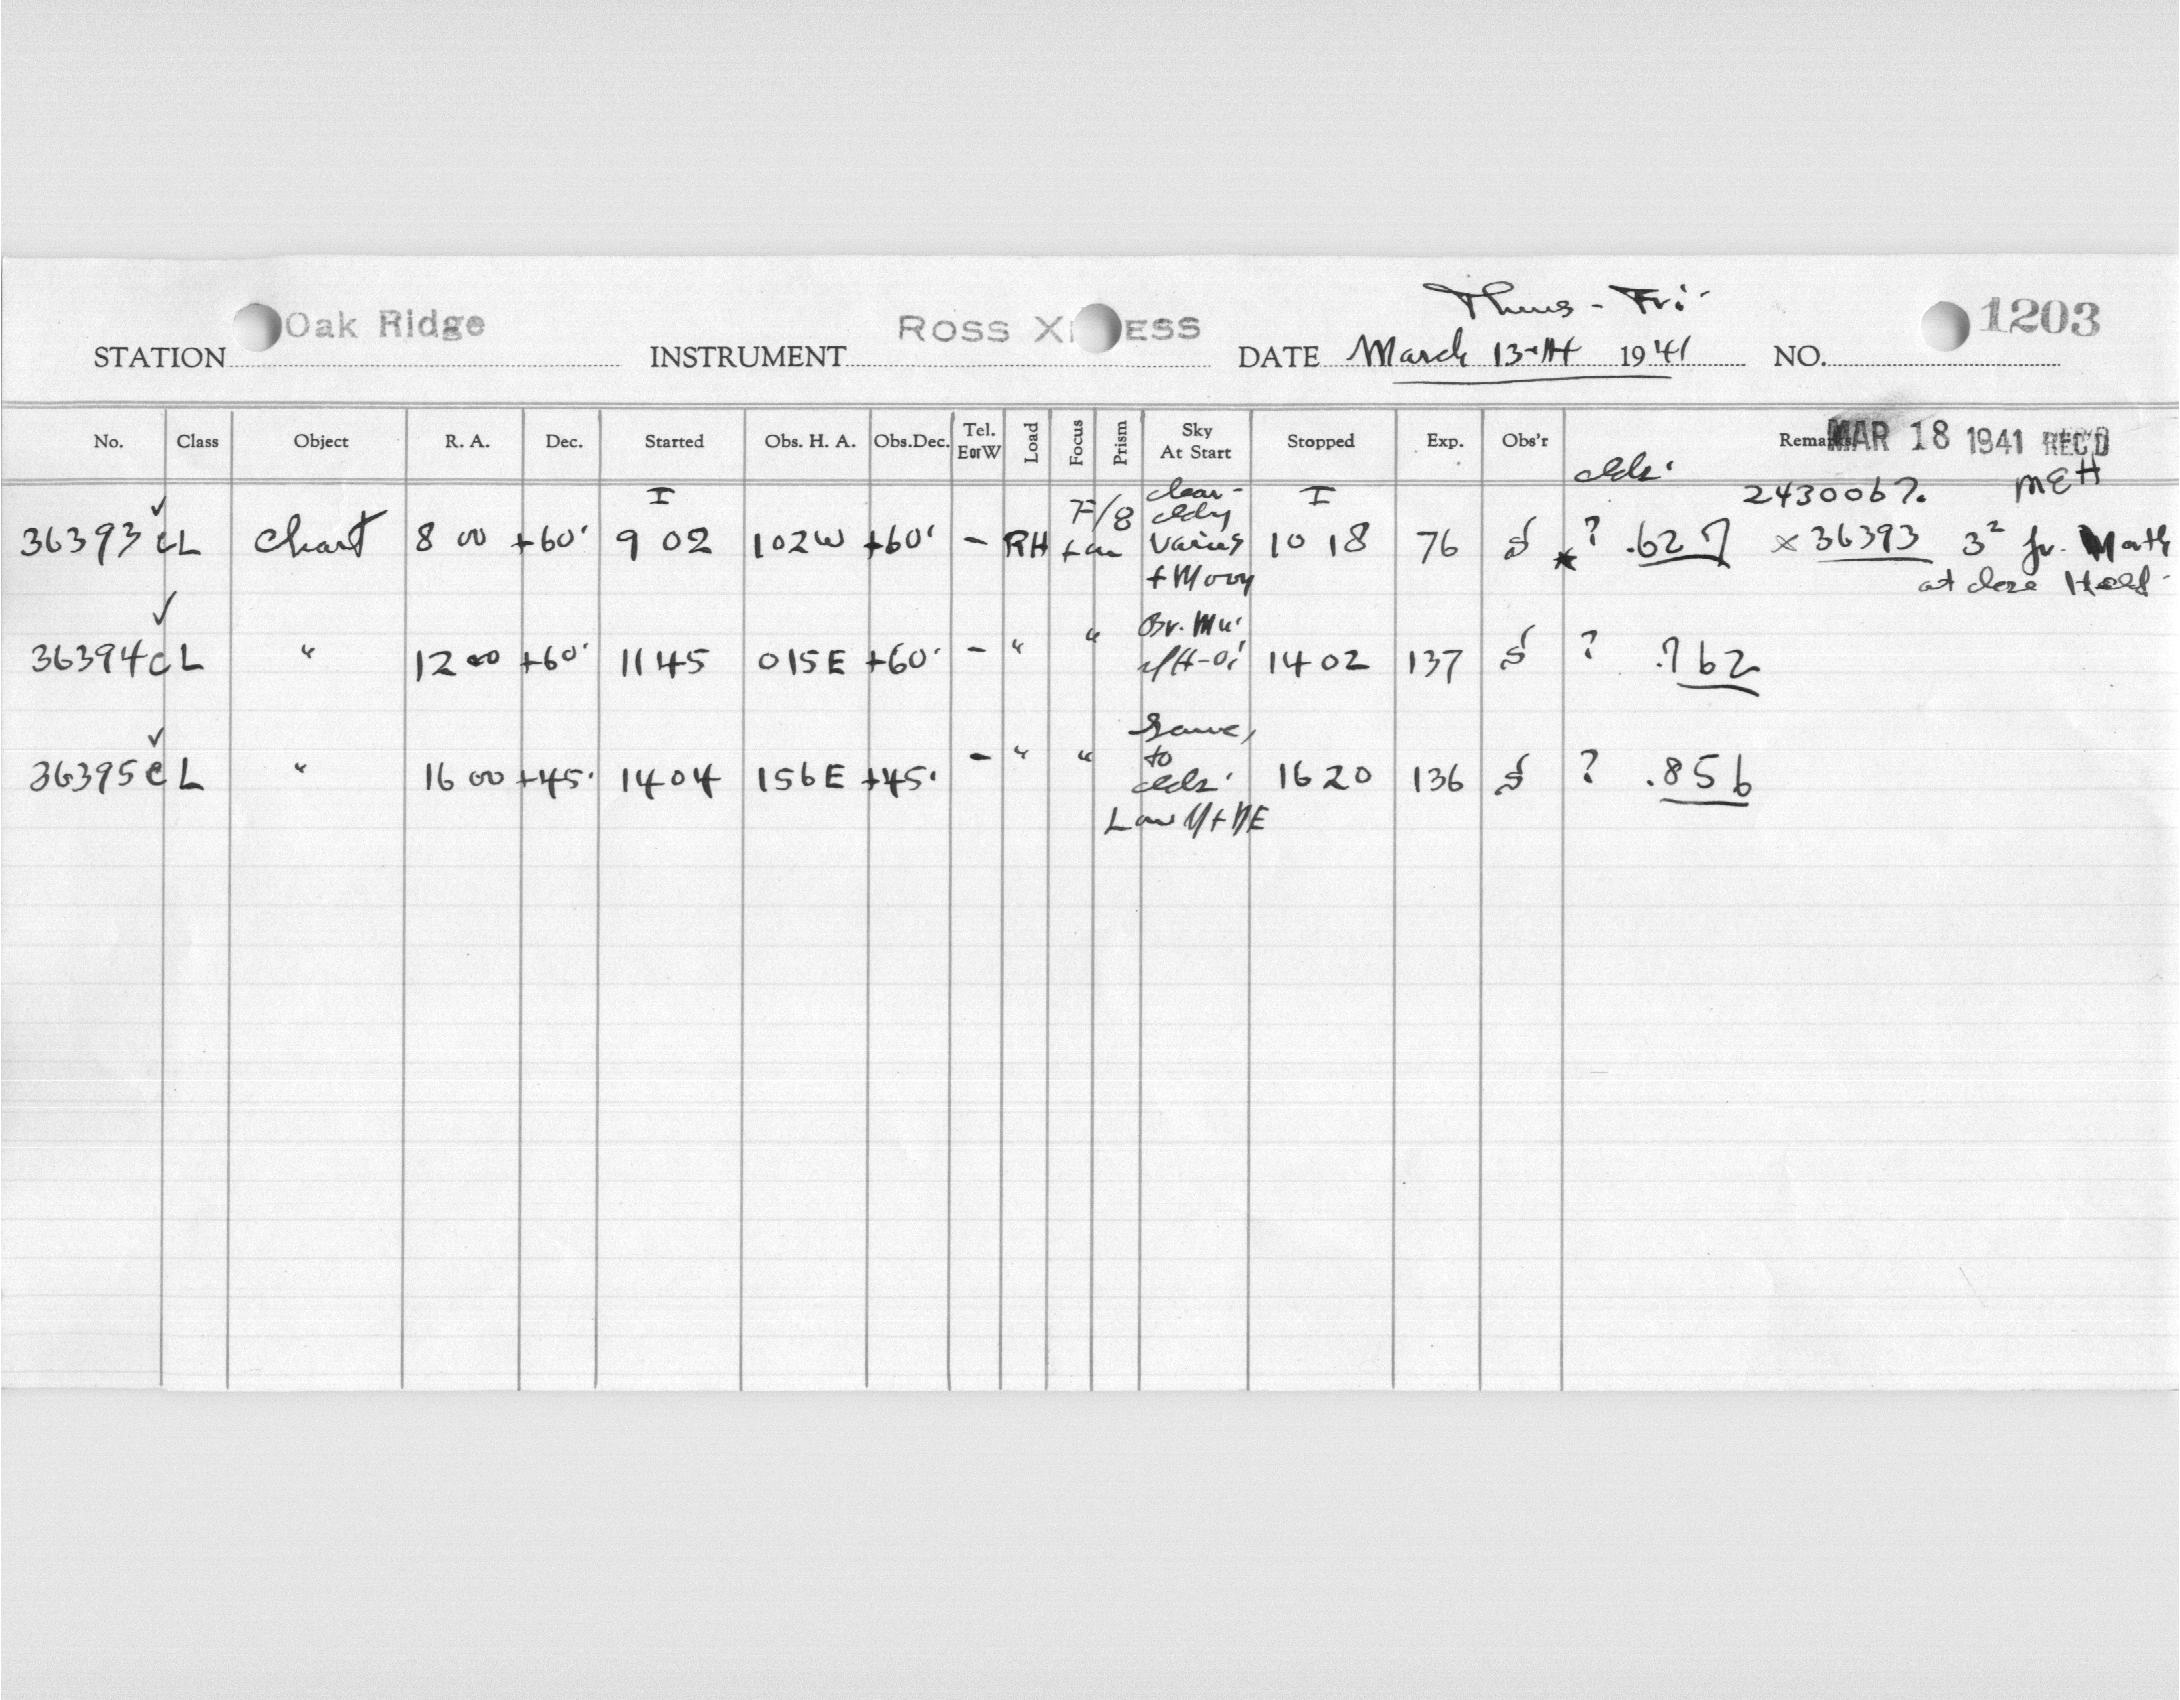 Thurs - Fri.
STATION Oak Ridge INSTRUMENT ROSS X ESS DATE March 13-14 1941 NO. 1203
No. Class Object R. A. Dec. Started Obs. H. A. Obs.Dec. Tel. E or W Load Focus Prism Sky At Start Stopped Exp. Obs'r Remarks MAR 18 1941 REC'D
clds. 2430067. MEH
36393 ✓ cL Chart 8 00 +60° I 9 02 1 02 W +60° - RH F/8 clear- cldy + Moon I 10 18 76 * ? .627 × 36393 3² fr.
at close
36394 ✓ cL " 12 00 +60° 11 45 0 15 E +60° - " " 14 02 137 ? .762
36395 ✓ cL " 16 00 +45° 14 04 1 56 E +45° - " " Same, to clds. Low N + NE 16 20 136 ? .856